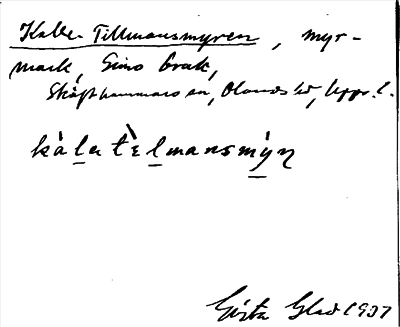 Kalle-Tillmansmyren, myr-
mark, Gimo bruk,
Skäfthammars sn, Olands hd, Uppl.
kàlɐtɛ̀lmansmýn
Gösta Glad 1937